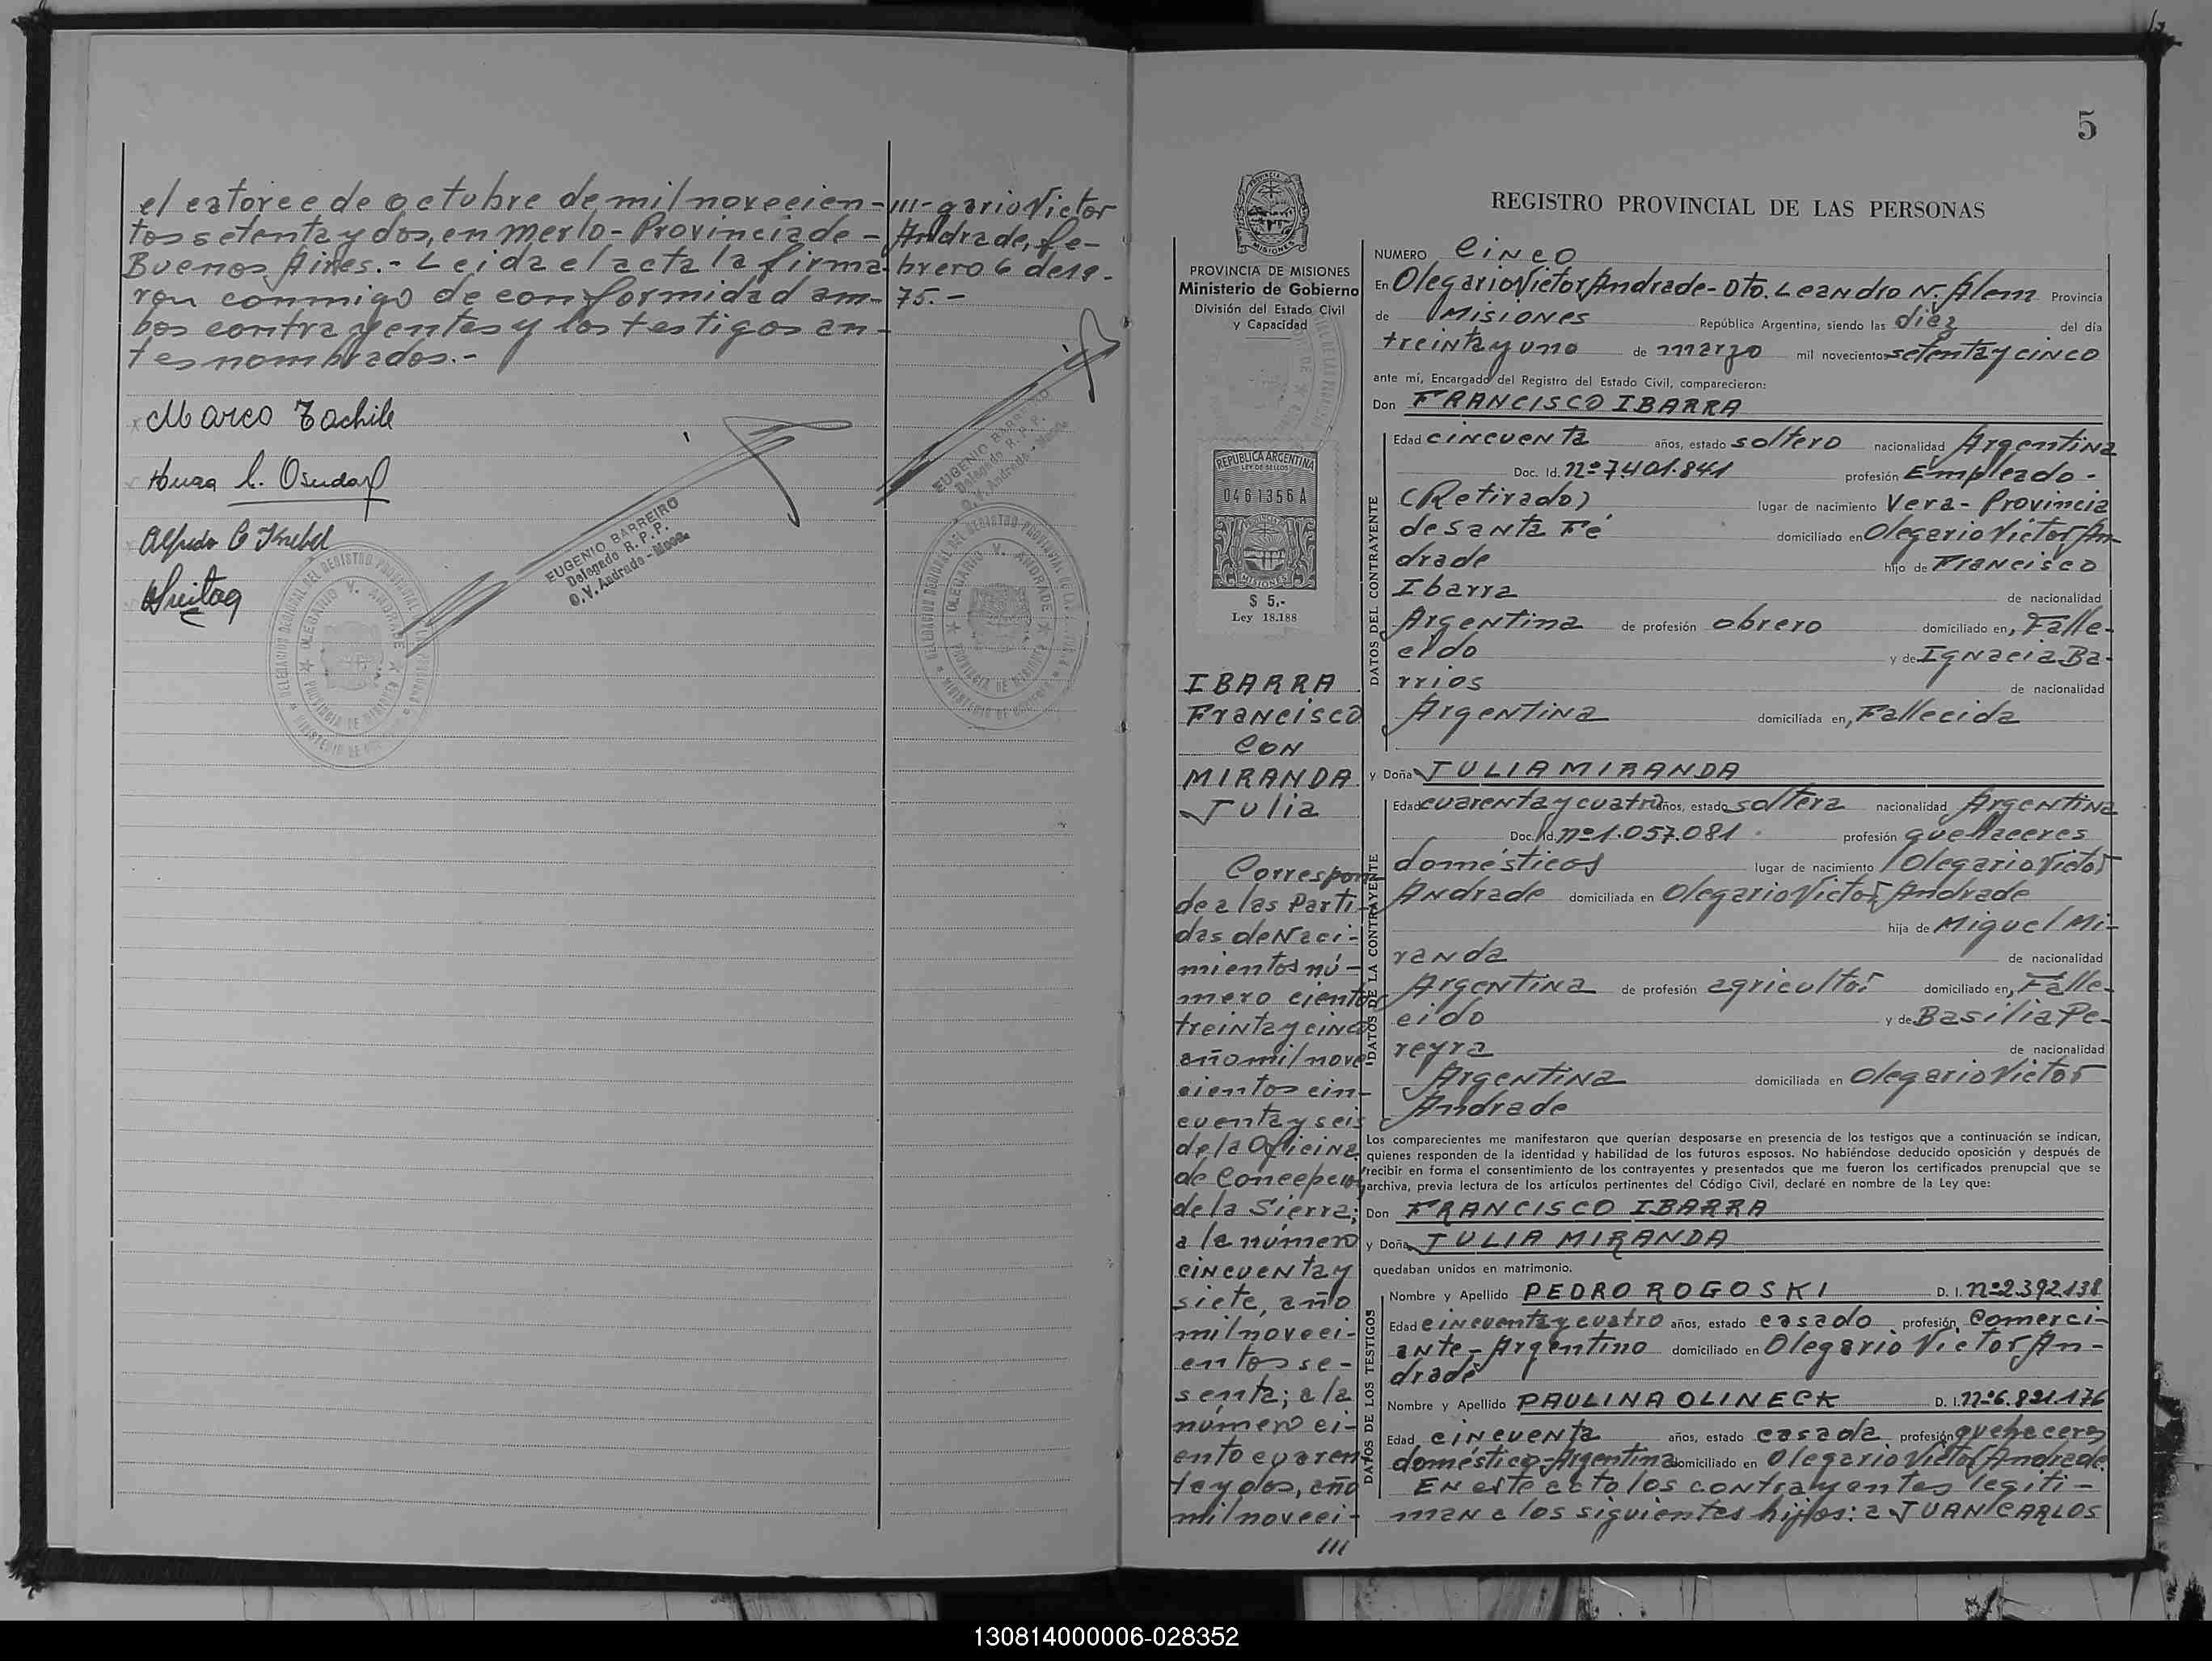 el catorce de octubre de mil novecien-
tos setenta y dos, en Merlo - Provincia de -
Buenos Aires.- Leida el acta la firma-
ron conmigo de conformidad am-
bos contrayentes y los testigos an-
tes nombrados.-
Marco
Alfredo
EUGENIO BARREIRO
Delegado R. P. P.
O. V. Andrade - Mnes.
DELEGACION REGIONAL DEL REGISTRO PROVINCIAL DE LAS PERSONAS
OLEGARIO V. ANDRADE
PROVINCIA DE MISIONES
MINISTERIO DE GOBIERNO
III- gario Victor
Andrade, fe-
brero 6 de 19-
75.-
EUGENIO BARREIRO
Delegado R. P. P.
O. V. Andrade - Mnes.
DELEGACION REGIONAL DEL REGISTRO PROVINCIAL DE LAS
OLEGARIO V. ANDRADE
PROVINCIA DE MISIONES
MINISTERIO DE GOBIERNO
5
PROVINCIA DE
MISIONES
PROVINCIA DE MISIONES
Ministerio de Gobierno
División del Estado Civil
y Capacidad
REPUBLICA ARGENTINA
LEY DE SELLOS
0461356 A
MISIONES
$ 5,-
Ley 18.188
IBARRA
Francisco
CON
MIRANDA
Julia
Correspon-
de a las Parti-
das de Naci-
mientos nú-
mero ciento
treinta y cinco
año mil nove
cientos cin-
cuenta y seis
de la Oficina
de Concepción
de la Sierra;
a la número
cincuenta y
siete, año
mil noveci-
entos se-
senta; a la
número ci-
ento cuaren
ta y dos, año
mil noveci-
III
REGISTRO PROVINCIAL DE LAS PERSONAS
NUMERO Cinco
En Olegario Victor Andrade - Dto. Leandro N. Alem Provincia
de Misiones República Argentina, siendo las diez del día
treinta y uno de marzo mil novecientos setenta y cinco
ante mí, Encargado del Registro del Estado Civil, comparecieron:
Don FRANCISCO IBARRA
DATOS DEL CONTRAYENTE
Edad cincuenta años, estado soltero nacionalidad Argentina
Doc. Id. Nº 7.401.841 profesión Empleado -
(Retirado) lugar de nacimiento Vera - Provincia
de Santa Fé domiciliado en Olegario Victor An-
drade hijo de Francisco
Ibarra de nacionalidad
Argentina de profesión obrero domiciliado en, Falle-
cido y de Ignacia Ba-
rrios de nacionalidad
Argentina domiciliada en, Fallecida
y Doña JULIA MIRANDA
DATOS DE LA CONTRAYENTE
Edad cuarenta y cuatro años, estado soltera nacionalidad Argentina
Doc. Id. Nº 1.057.081 profesión quehaceres
domésticos lugar de nacimiento Olegario Victor
Andrade domiciliada en Olegario Victor Andrade
hija de Miguel Mi-
randa de nacionalidad
Argentina de profesión agricultor domiciliado en, Falle-
cido y de Basilia Pe-
reyra de nacionalidad
Argentina domiciliada en Olegario Victor
Andrade
Los comparecientes me manifestaron que querían desposarse en presencia de los testigos que a continuación se indican,
quienes responden de la identidad y habilidad de los futuros esposos. No habiéndose deducido oposición y después de
recibir en forma el consentimiento de los contrayentes y presentados que me fueron los certificados prenupcial que se
archiva, previa lectura de los artículos pertinentes del Código Civil, declaré en nombre de la Ley que:
Don FRANCISCO IBARRA
y Doña JULIA MIRANDA
quedaban unidos en matrimonio.
DATOS DE LOS TESTIGOS
Nombre y Apellido PEDRO ROGOSKI D. I. Nº 2.392.138
Edad cincuenta y cuatro años, estado casado profesión Comerci-
ante - Argentino domiciliado en Olegario Victor An-
drade
Nombre y Apellido PAULINA OLINECK D. I. Nº 6.821.176
Edad cincuenta años, estado casada profesión quehaceres
doméstico - Argentina domiciliado en Olegario Victor Andrade.
En este acto los contrayentes legiti-
man a los siguientes hijos: a JUAN CARLOS
130814000006-028352